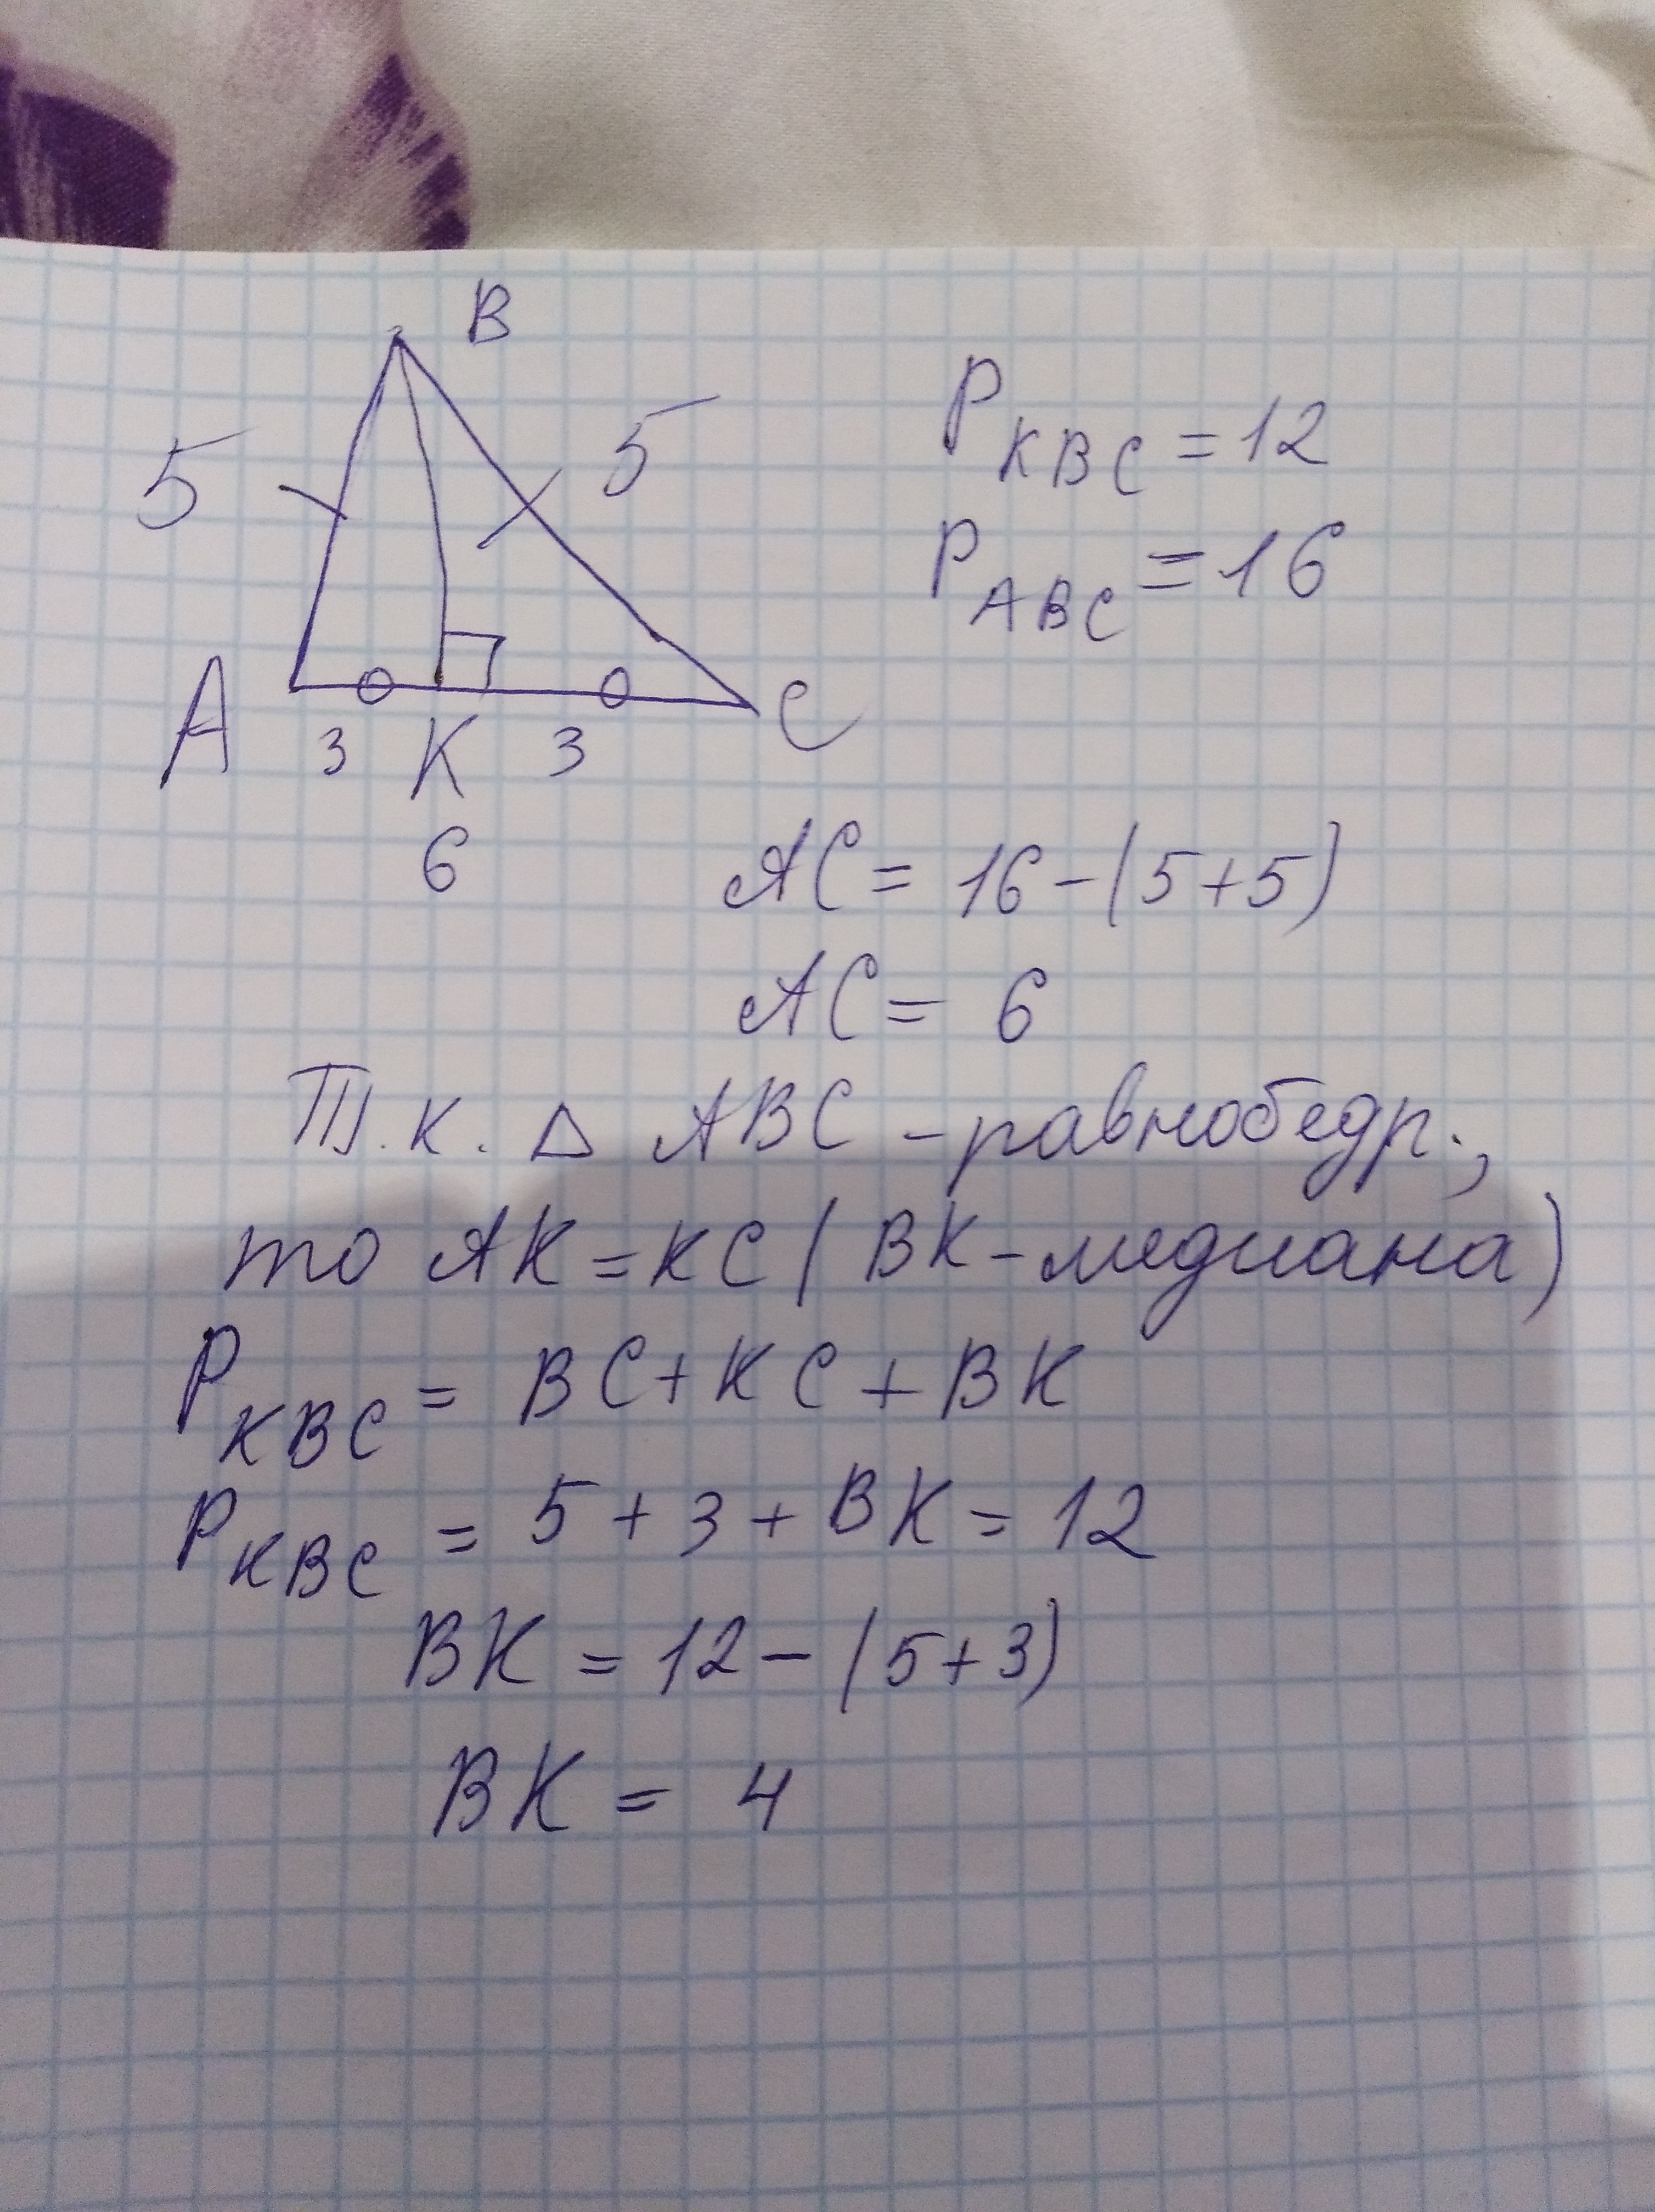 B
5
5
A
3
K
3
C
6
P KBC = 12
P ABC = 16
AC = 16 - (5+5)
AC = 6
Т.к. Δ ABC - равнобедр.,
то AK = KC (BK - медиана)
P KBC = BC + KC + BK
P KBC = 5 + 3 + BK = 12
BK = 12 - (5+3)
BK = 4